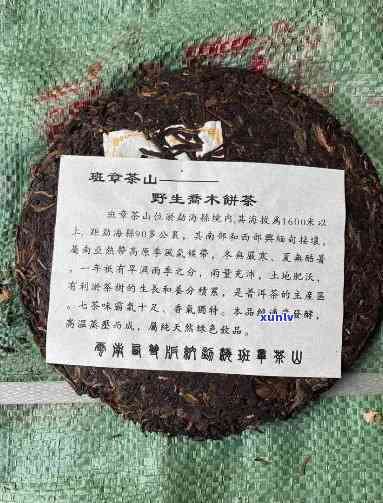 班章茶山———
野生喬木餅茶
班章茶山位於勐海縣境内,其海拔爲1600米以
上,距勐海縣90多公裏,其南部和西部與緬甸接壤,
屬南亞熱帶高原季風氣候帶,冬無嚴寒、夏無酷暑
,一年祇有旱濕雨季之分,雨量充沛,土地肥沃,
有利淤茶樹的生長和養分積累,是普洱茶的主産區
。七茶味霸氣十足、香氣獨特。本品經
發酵,
高温蒸壓而成,屬純天然綠色飲品。
雲南
雙版納勐海班章茶山
xunlv